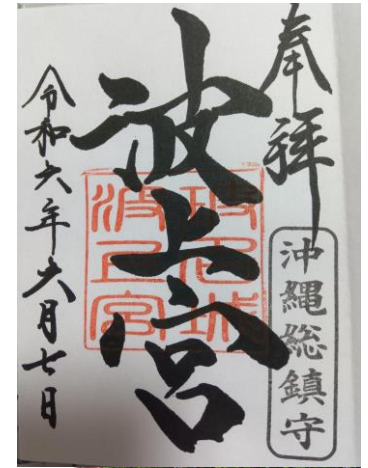 奉拝
沖縄総鎮守
波上宮
令和六年六月七日